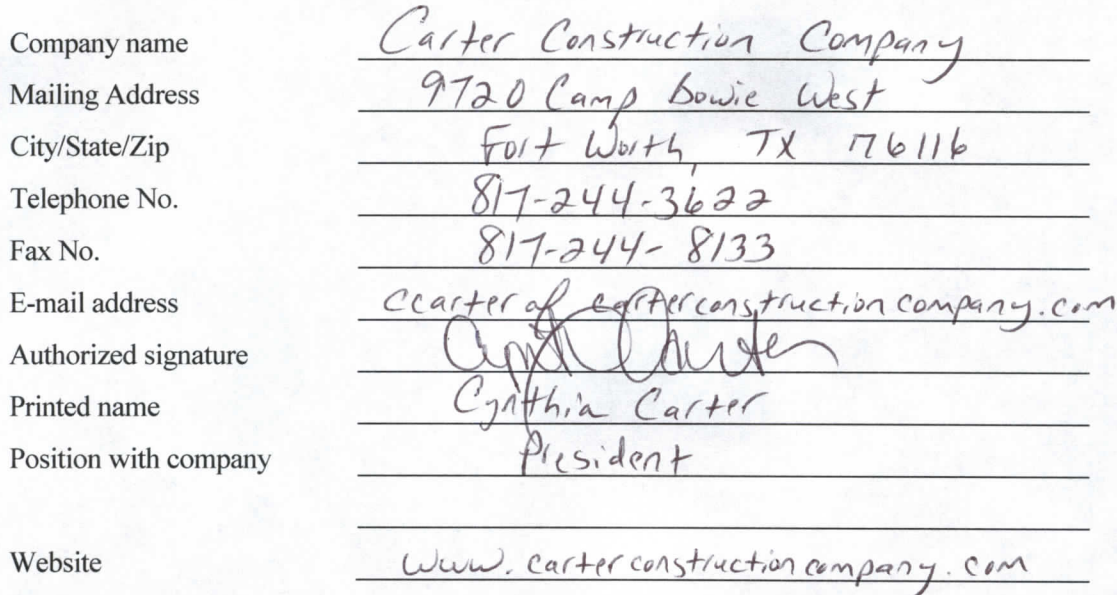 Company name Carter Construction Company
Mailing Address 9720 Camp Bowie West
City/State/Zip Fort Worth, TX 76116
Telephone No. 817-244-3622
Fax No. 817-244-8133
E-mail address ccarter carterconstructioncompany.com
Authorized signature
Printed name Cynthia Carter
Position with company President
Website www.carterconstructioncompany.com